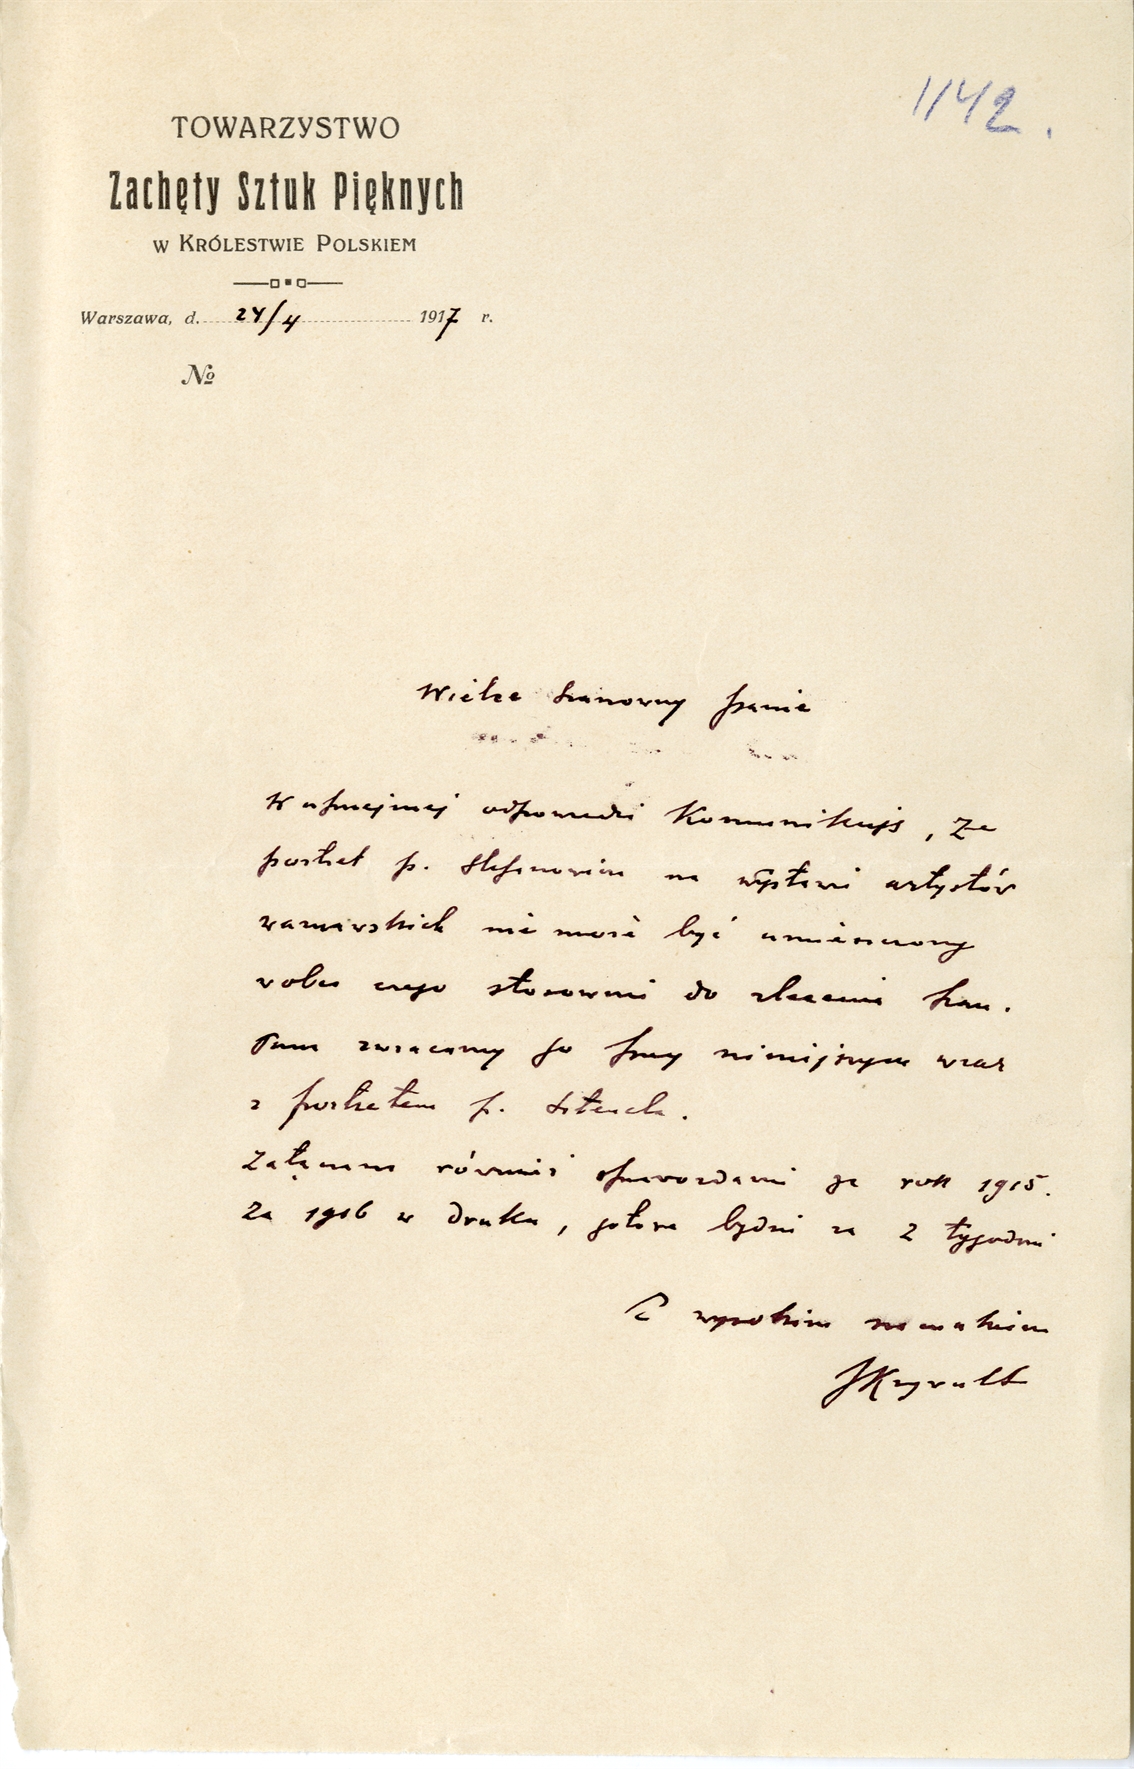 1142.
TOWARZYSTWO
Zachęty Sztuk Pięknych
w Królestwie Polskiem
Warszawa, d. 24/4 1917 r.
№
Wielce Szanowny Panie
W uprzejmej odpowiedzi komunikuję, że
portret p. na wystawie artystów
warszawskich nie może być umieszczony
wobec czego stosownie do zlecenia Szan.
Pana zwracamy go przy niniejszym wraz
z portretem p.
Załączam również sprawozdanie za rok 1915.
Za 1916 w druku, gotowe będzie za 2 tygodnie
Z wysokim szacunkiem